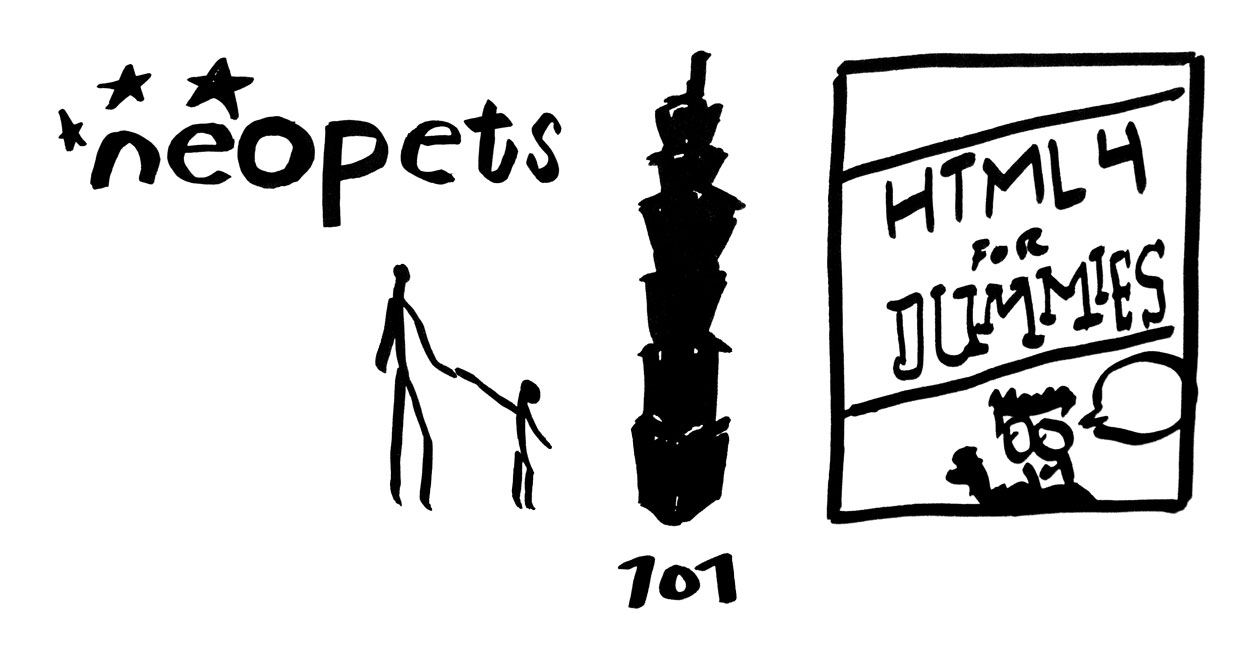 neopets
101
HTML 4
FOR
DUMMIES